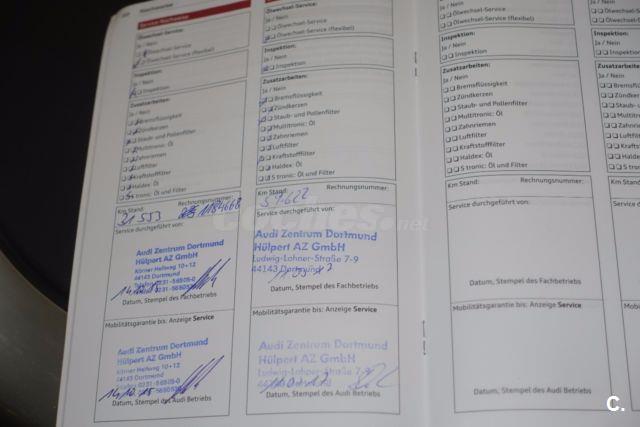 Service-Nachweise
Ölwechsel-Service:
Ja / Nein
Ölwechsel-Service
Ölwechsel-Service (flexibel)
Inspektion:
Ja / Nein
Inspektion
Zusatzarbeiten:
Ja / Nein
Bremsflüssigkeit
Zündkerzen
Staub- und Pollenfilter
Multitronic: Öl
Zahnriemen
Luftfilter
Kraftstofffilter
Haldex: Öl
S tronic: Öl und Filter
Km Stand: Rechnungsnummer:
31 553
Service durchgeführt von:
Audi Zentrum Dortmund
Hülpert AZ GmbH
Körner Hellweg 10+12
44143 Dortmund
Telefon 0231-56505-0
14.10.15
Datum, Stempel des Fachbetriebs
Mobilitätsgarantie bis: Anzeige Service
Audi Zentrum Dortmund
Hülpert AZ GmbH
Körner Hellweg 10+12
44143 Dortmund
Telefon 0231-56505-0
14.10.15
Datum, Stempel des Audi Betriebs
Ölwechsel-Service:
Ja / Nein
Ölwechsel-Service
Ölwechsel-Service (flexibel)
Inspektion:
Ja / Nein
Inspektion
Zusatzarbeiten:
Ja / Nein
Bremsflüssigkeit
Zündkerzen
Staub- und Pollenfilter
Multitronic: Öl
Zahnriemen
Luftfilter
Kraftstofffilter
Haldex: Öl
S tronic: Öl und Filter
Km Stand: Rechnungsnummer:
Service durchgeführt von:
Audi Zentrum Dortmund
Hülpert AZ GmbH
Ludwig-Lohner-Straße 7-9
44143 Dortmund
Datum, Stempel des Fachbetriebs
Mobilitätsgarantie bis: Anzeige Service
Audi Zentrum Dortmund
Hülpert AZ GmbH
Ludwig-Lohner-Straße 7-9
44143 Dortmund
Datum, Stempel des Audi Betriebs
Ja / Nein
Ölwechsel-Service
Ölwechsel-Service (flexibel)
Inspektion:
Ja / Nein
Inspektion
Zusatzarbeiten:
Ja / Nein
Bremsflüssigkeit
Zündkerzen
Staub- und Pollenfilter
Multitronic: Öl
Zahnriemen
Luftfilter
Kraftstofffilter
Haldex: Öl
S tronic: Öl und Filter
Km Stand: Rechnungsnummer:
Service durchgeführt von:
Datum, Stempel des Fachbetriebs
Mobilitätsgarantie bis: Anzeige Service
Datum, Stempel des Audi Betriebs
Inspektion:
Ja / Nein
Zusatzarbeiten:
Ja / Nein
Km Stand:
coches.net
C.